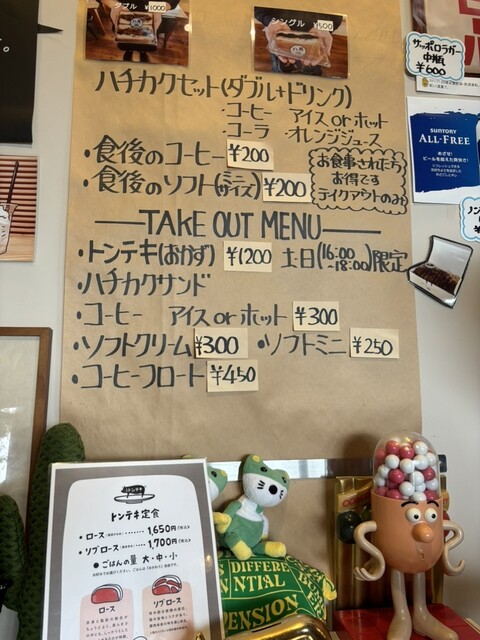 ダブル ¥1000
シングル ¥500
ハチカクセット(ダブル+ドリンク)
・コーヒー アイス or ホット
・コーラ ・オレンジジュース
・食後のコーヒー ¥200
・食後のソフト(ミニサイズ) ¥200
お食事されたら
お得です
テイクアウトのみ
TAKE OUT MENU
・トンテキ(おかず) ¥1200 土日(16:00~18:00)限定
・ハチカクサンド
・コーヒー アイス or ホット ¥300
・ソフトクリーム ¥300 ・ソフトミニ ¥250
・コーヒーフロート ¥450
サッポロラガー
中瓶
¥600
SUNTORY
ALL-FREE
トンテキ
トンテキ定食
・ロース 1,650円
・リブロース 1,700円
●ごはんの量 大・中・小
ロース
リブロース
DIFFERE
NTIAL
PENSION